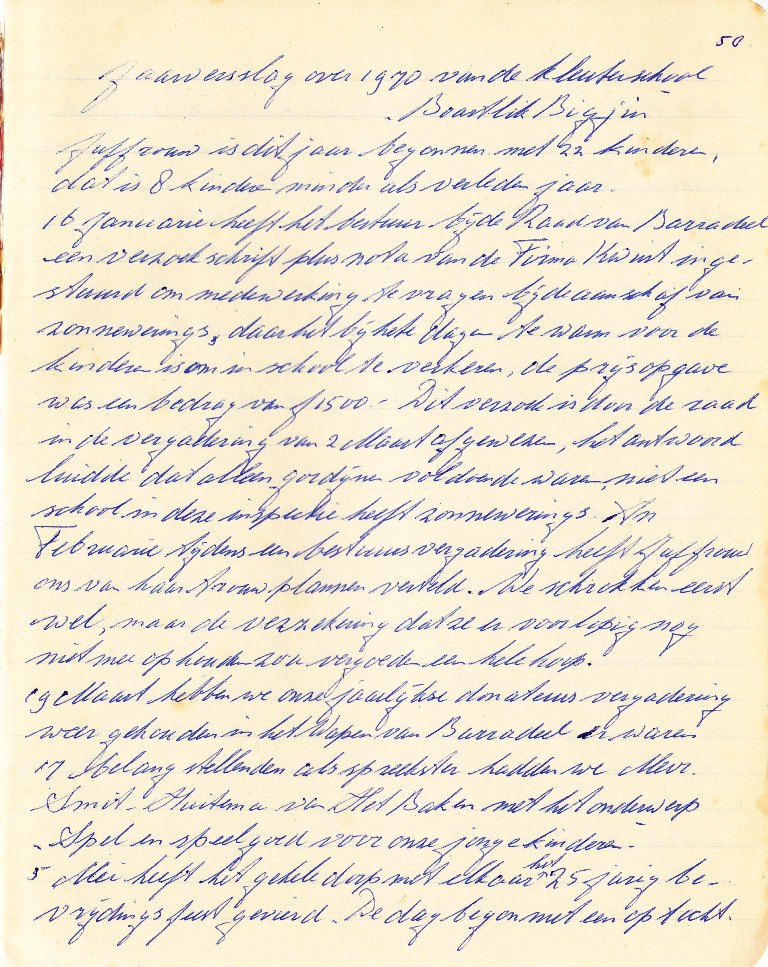 50
Jaarverslag over 1970 van de kleuterschool
"Boartlik Bigjin"
Juffrouw is dit jaar begonnen met 22 kinderen,
dat is 8 kinderen minder als verleden jaar.
16 Januarie heeft het bestuur bij de Raad van Barradeel
een verzoekschrift plus nota van de Firma Kwint inge-
stuurd om medewerking te vragen bij de aanschaf van
zonnewerings, daar het bij hete dagen te warm voor de
kinderen is om in school te verkeren, de prijsopgave
was een bedrag van f 1500.- Dit verzoek is door de raad
in de vergadering van 2 Maart afgewezen, het antwoord
luidde dat alleen gordijnen voldoende waren, niet een
school in deze inspectie heeft zonnewerings. In
Februarie tijdens een bestuursvergadering heeft Juffrouw
ons van haar trouwplannen verteld. We schrokken eerst
wel, maar de verzekering dat ze er voorlopig nog
niet mee ophouden zou vergoeden een hele hoop.
19 Maart hebben we onze jaarlijkse donateurs vergadering
weer gehouden in het Wapen van Barradeel er waren
17 belangstellenden als spreekster hadden we Mevr.
Smit-Huitema van Het Baken met het onderwerp
"Spel en speelgoed voor onze jonge kinderen"
5 Mei heeft het gehele dorp met elkaar het 25 jarig be-
vrijdingsfeest gevierd. De dag begon met een optocht.